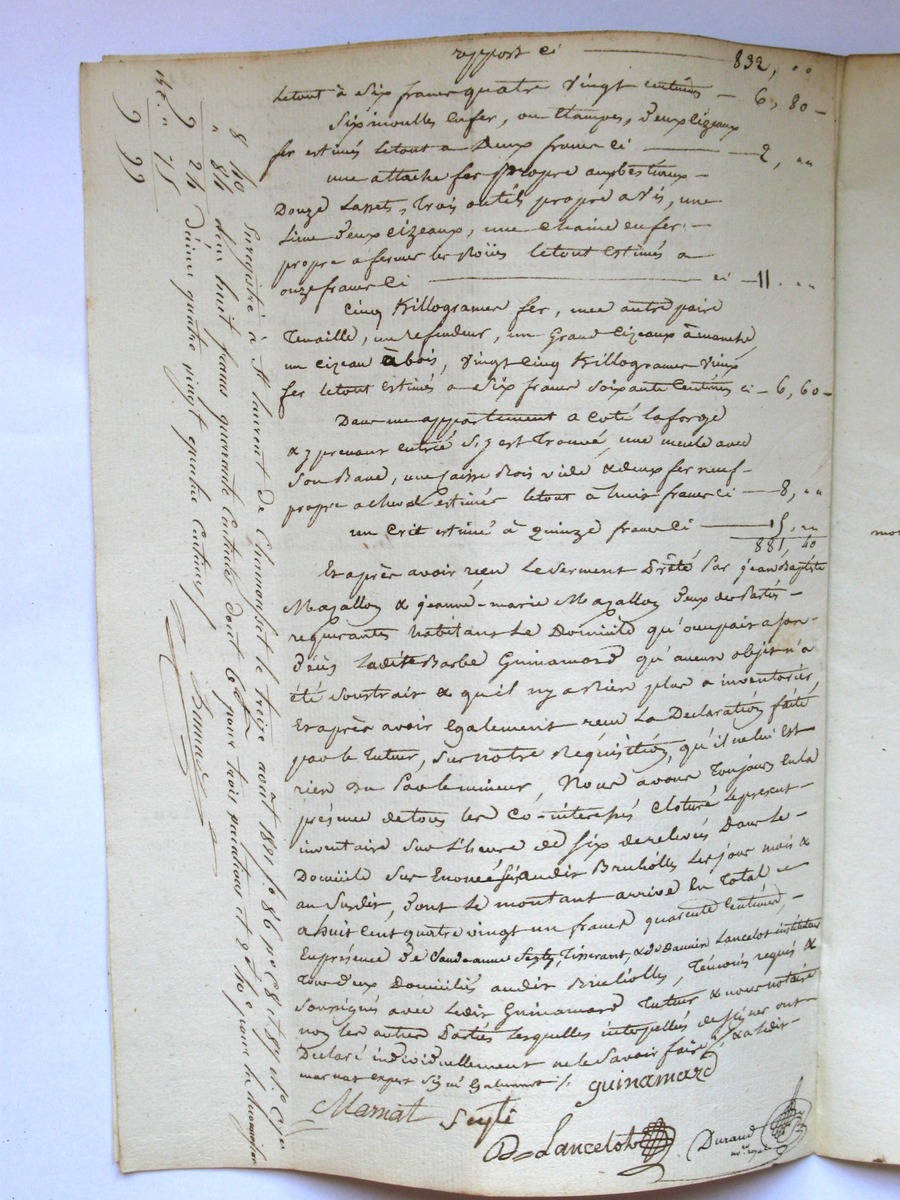 report ci 832, ..
letout à Six francs quatre vingt centimes — 6, 80 —
Six moulles en fer, ou Etampes, deux Cizeaux
fer estimés letout a Deux francs Ci — 2, ..
une attache fer propre aux bestiaux —
Douze Lassets, Trois outils propre a vis, une
Lime deux cizeaux, une Chaine en fer —
propre a fermer les Roües letout Estimés a
onze francs Ci ci — 11 . ..
Cinq Killogrames fer, une autre paire
Tenaille, un refendeur, un Grand Cizeaux à manche,
un Cizeau à bois, vingt Cinq Killogrames vieux
fer letout estimés a Six francs Soixante Centimes ci — 6, 60 —
Dans un appartement a Coté laforge
& y prenant entrée S'y est Trouvé, une meule avec
Son Banc, une Caisse Bois vide & deux fer neuf —
propre a cheval estimés letout à huit francs Ci — 8, ..
un Crit estimé à quinze francs Ci — 15, ..
881, 40
Et après avoir reçu Le Serment Prêté Par jean Baptiste
Mazalloz & jeanne-marie Mazalloz deux des Parties —
requerantes habitans Le Domicile qu'occupait a son —
décès Ladite Barbe Guinamard qu'aucun objet n'a
été Soustrait & qu'il n'y a Rien plus a inventorier,
Et après avoir Egalement reçu La Declaration faite
par le Tuteur, Sur notre Requisition, qu'il ne lui est
rien Du Par le mineur, Nous avons Toujours en la
présence de tous les Co-interessés Cloturé le present —
inventaire Sur L'heure de Six de relevée Dans le —
Domicile Sus Enoncé audit Brulholles Les jour mois &
an Susdit, Dont le montant arrive En Total a
a huit Cent quatre vingt un francs quarante Centimes, —
En présence de Seyte, Tisserant, & de Lancelot instituteur
Tous deux Domiciliés audit Brulholles, Témoins requis &
Soussignés avec Ledit Guinamard Tuteur & nous notaire
non les autres Parties Lesquelles interpellées de signer ont
Declaré individuellement ne le Savoir faire & a Ledit —
marnat expert Signé Egalement ./.
guinamard
Marnat Seyte
Lancelot Durand
no.re royal
Enregistré à St Laurent de Chamousset le treize août 1821 f.o 86
dix huit francs quarante Centimes dont 6 f pour trois vacations et 2 f 40 pour
Dixième quatre vingt quatre Centimes
8 40
" 84
9 24
" 75
9 99